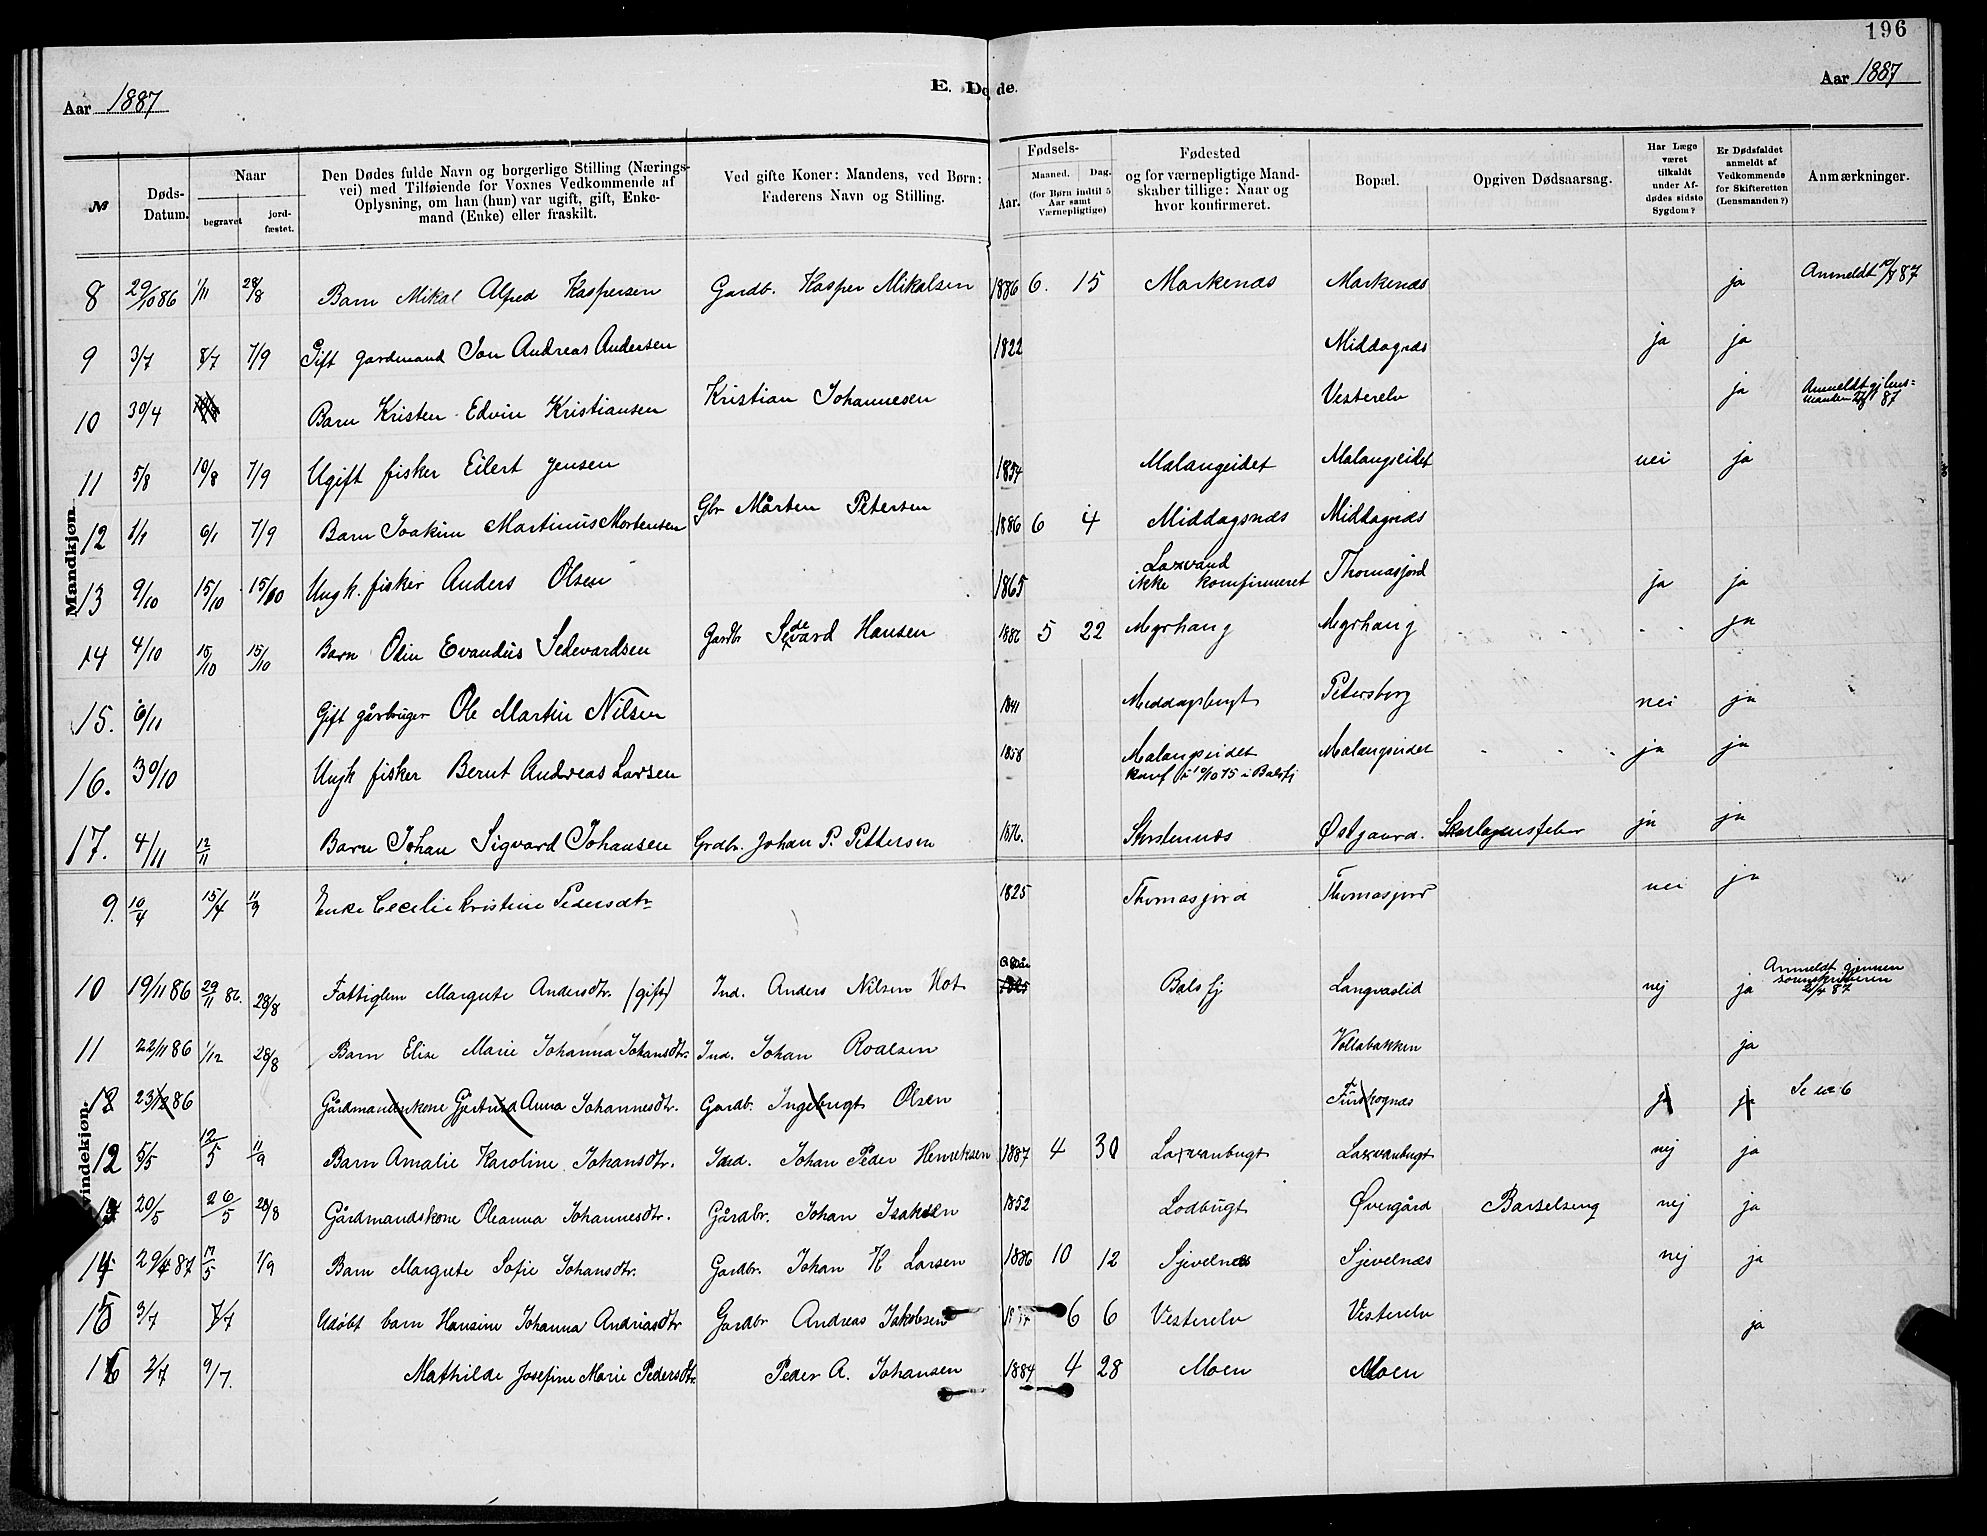 196
Aar 1887
E. Døde.
Aar 1887
№
Døds-Datum.
Naar
begravet
jordfæstet.
Den Dødes fulde Navn og borgerlige Stilling (Nærings-
vei) med Tilføiende for Voxnes Vedkommende af
Oplysning, om han (hun) var ugift, gift, Enke-
mand (Enke) eller fraskilt.
Ved gifte Koner: Mandens, ved Børn:
Faderens Navn og Stilling.
Fødsels-
Aar.
Maaned. Dag.
(for Børn indtil 5
Aar samt
Værnepligtige)
Fødested
og for værnepligtige Mand-
skaber tillige: Naar og
hvor konfirmeret.
Bopæl.
Opgiven Dødsaarsag.
Har Læge
været
tilkaldt
under Af-
dødes sidste
Sygdom?
Er Dødsfaldet
anmeldt af
Vedkommende
for Skifteretten
(Lensmanden?)
Anmærkninger.
Mandkjøn.
8 29/10 86 1/11 28/8 Barn Mikal Alfred Kaspersen Gardb. Kasper Mikalsen 1886 6. 15 Markenæs Markenæs ja Anmeldt 87
9 3/7 8/7 7/9 Gift gardmand Jon Andreas Andersen 1822 Middagnæs ja ja
10 30/4 Barn Kristen Edvin Kristiansen Kristian Johannesen Vesterelv ja Anmeldt gj lens=
manden 87
11 5/8 10/8 7/9 Ugift fisker Eilert Jensen 1854 Malangeidet Malangseidet nei ja
12 1/1 6/1 7/9 Barn Joakim Martinus Mortensen Gbr Mårten Petersen 1886 6 4 Middagsnæs Middagnæs
13 9/10 15/10 15/10 Ungk. fisker Anders Olsen 1865 Laxvand
ikke komfirmeret Thomasjord ja ja
14 4/10 15/10 15/10 Barn Odin Evandus Sedevardsen Gardbr Sedevard Hansen 1886 5 22 Myrhaug Myrhaug ja
15. 6/11 Gift gårbruger Ole Martin Nilsen 1841 Middagsbugt Petersborg nei ja
16. 30/10 Ungk fisker Bernt Andreas Larsen 1858 Malangseidet
konf i Balsfj Malangseidet ja ja
17. 4/11 12/11 Barn Johan Sigvard Johansen Grdbr. Johan P. Pettersen 1876. Storstennæs Østgaard. Skarlagensfeber ja ja
Kvindekjøn.
9. 10/4 15/4 11/9 Enke Cecelie Kristine Pedersdtr 1825 Thomasjord Thomasjord nei ja
10 19/11 86 29/11 86. 28/8 Fattiglem Margrete Andersdtr. (gift) Ind. Anders Nilsen Hot Balsfj Langvaslid nej ja Anmeldt gjennem
sorenskriveren
87
11 22/11 86 1/12 28/8 Barn Elise Marie Johanna Johansdtr. Ind. Johan Roalsen Vollabakken ja
12 23/12 86 Gårdmandskone Gjertrud Anna Johannesdtr. Gardb. Ingebrigt Olsen Furskognæs ja ja Se no 6
12 5/5 12/5 11/9 Barn Amalie Karoline Johansdtr. Ind. Johan Peder Henriksen 1887 4 30 Laxvanbugt Laxvanbugt nej ja
13 20/5 26/5 28/8 Gårdmandskone Oleanna Johannesdtr. Gårdbr. Johan Isaksen 1852 Lodbugt Øvergård Barselseng nej ja
14 29/4 87 11/5 1/9 Barn Margrete Sofie Johansdtr. Gardbr. Johan K Larsen 1886 10 12 Sjevelnæs Sjevelnæs nej ja
15 3/7 7/7 Udøbt barn Hansine Johanna Andriasdtr Gardbr Andreas Jakobsen 6 6 Vesterelv Vesterelv ja
16 2/7 9/7. Mathilde Josefine Marie Pedersdtr. Peder A. Johansen 1884 4 28 Moen Moen